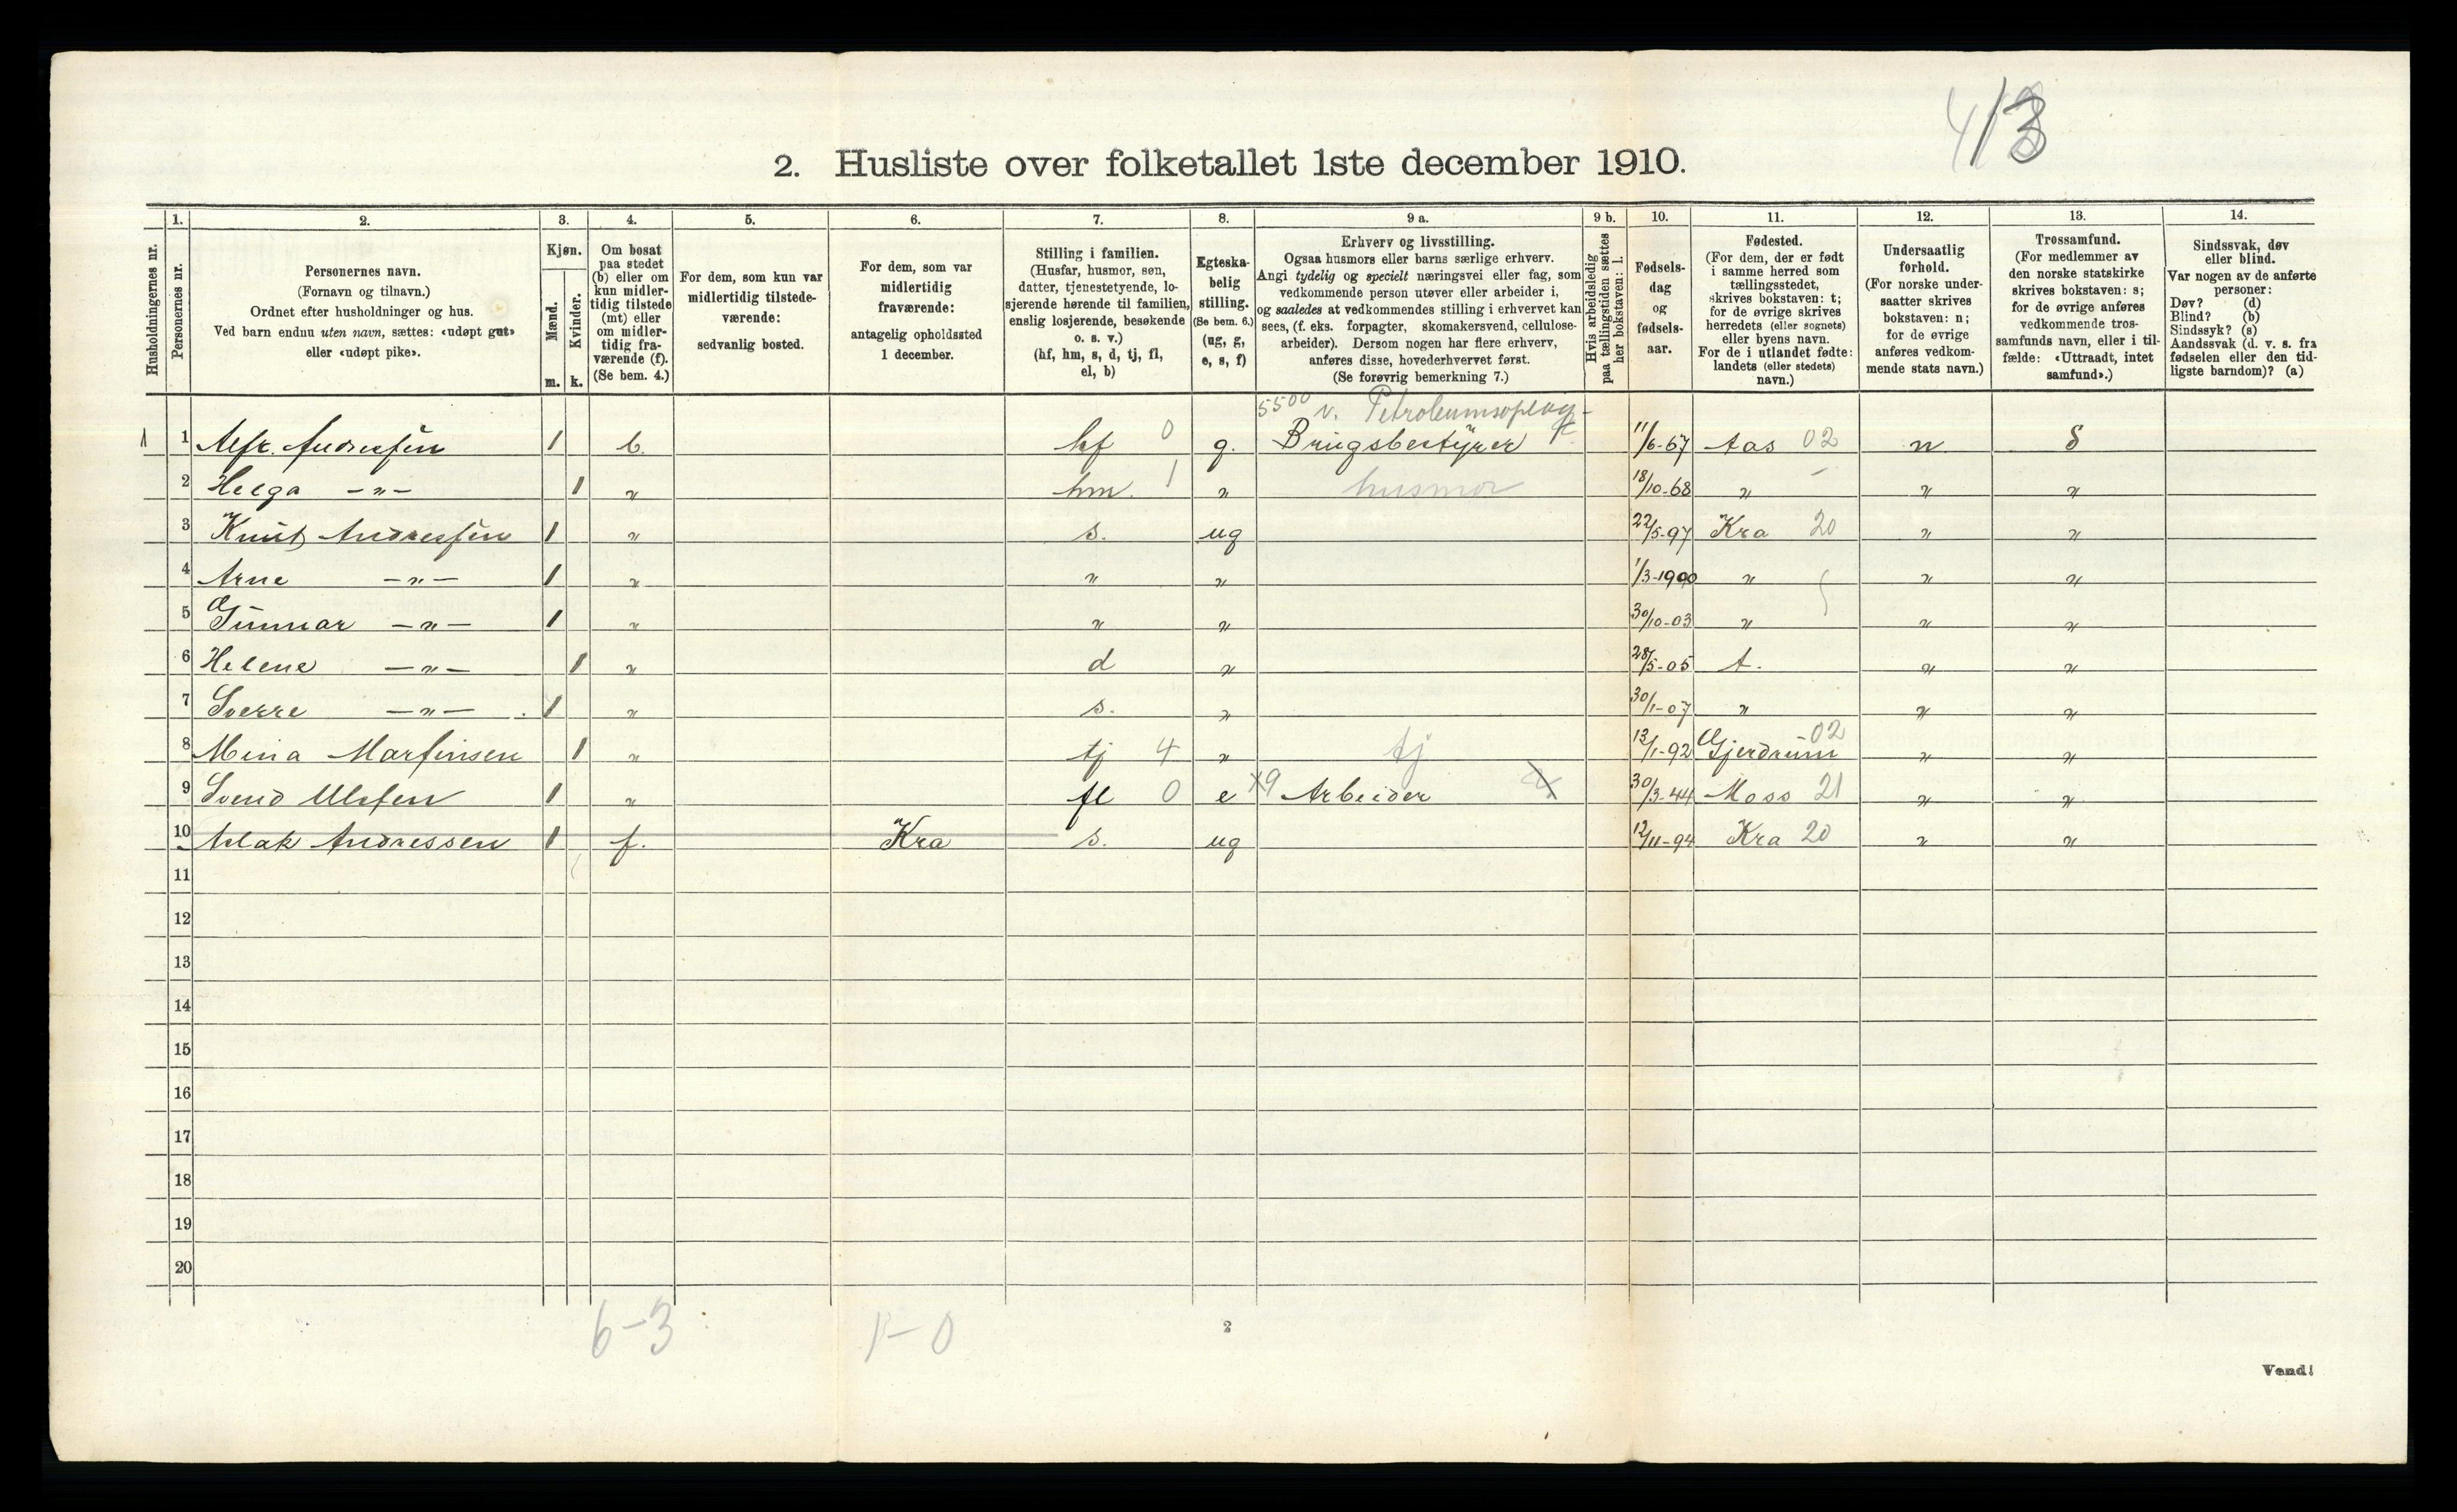 413
2. Husliste over folketallet 1ste december 1910.
Husholdningernes nr.
1. Personernes nr.
2. Personernes navn.
(Fornavn og tilnavn.)
Ordnet efter husholdninger og hus.
Ved barn endnu uten navn, sættes: «udøpt gut»
eller «udøpt pike».
3. Kjøn.
Mænd. m.
Kvinder. k.
4. Om bosat
paa stedet
(b) eller om
kun midler-
tidig tilstede
(mt) eller
om midler-
tidig fra-
værende (f).
(Se bem. 4.)
5. For dem, som kun var
midlertidig tilstede-
værende:
sedvanlig bosted.
6. For dem, som var
midlertidig
fraværende:
antagelig opholdssted
1 december.
7. Stilling i familien.
(Husfar, husmor, søn,
datter, tjenestetyende, lo-
sjerende hørende til familien,
enslig losjerende, besøkende
o. s. v.)
(hf, hm, s, d, tj, fl,
el, b)
8. Egteska-
belig
stilling.
(Se bem. 6.)
(ug, g,
e, s, f)
9 a. Erhverv og livsstilling.
Ogsaa husmors eller barns særlige erhverv.
Angi tydelig og specielt næringsvei eller fag, som
vedkommende person utøver eller arbeider i,
og saaledes at vedkommendes stilling i erhvervet kan
sees, (f. eks. forpagter, skomakersvend, cellulose-
arbeider). Dersom nogen har flere erhverv,
anføres disse, hovederhvervet først.
(Se forøvrig bemerkning 7.)
9 b. Hvis arbeidsledig
paa tællingstiden sættes
her bokstaven: l.
10. Fødsels-
dag
og
fødsels-
aar.
11. Fødested.
(For dem, der er født
i samme herred som
tællingsstedet,
skrives bokstaven: t;
for de øvrige skrives
herredets (eller sognets)
eller byens navn.
For de i utlandet fødte:
landets (eller stedets)
navn.)
12. Undersaatlig
forhold.
(For norske under-
saatter skrives
bokstaven: n;
for de øvrige
anføres vedkom-
mende stats navn.)
13. Trossamfund.
(For medlemmer av
den norske statskirke
skrives bokstaven: s;
for de øvrige anføres
vedkommende tros-
samfunds navn, eller i til-
fælde: «Uttraadt, intet
samfund».)
14. Sindssvak, døv
eller blind.
Var nogen av de anførte
personer:
Døv? (d)
Blind? (b)
Sindssyk? (s)
Aandssvak (d. v. s. fra
fødselen eller den tid-
ligste barndom)? (a)
5500 v. Petroleumsoplag-
1 1 Alfr. Andressen 1 b. hf 0 g. Brugsbestyrer 11/6-67 Aas 02 n s
2 Helga -"- 1 " hm. 1 " husmor 18/10-68 " " "
3 Knut Andressen 1 " s. ug 22/5-97 Kra 20 " "
4 Arne -"- 1 " " " 1/3-1900 " " "
5 Gunnar -"- 1 " " " 30/10-03 " " "
6 Helene -"- 1 " d " 28/5-05 t. " "
7 Sverre -"- 1 " s. " 30/1-07 " " "
8 Mina Martinsen 1 " tj 4 " tj 13/1-92 Gjerdrum 02 " "
9 Svend Ulefen 1 " fl 0 e x9 Arbeider 30/3-44 Moss 21 " "
10 Aslak Andressen 1 f. Kra s. ug 12/11-94 Kra 20 " "
11
12
13
14
15
16
17
18
19
20
6-3 1-0
2
Vend!